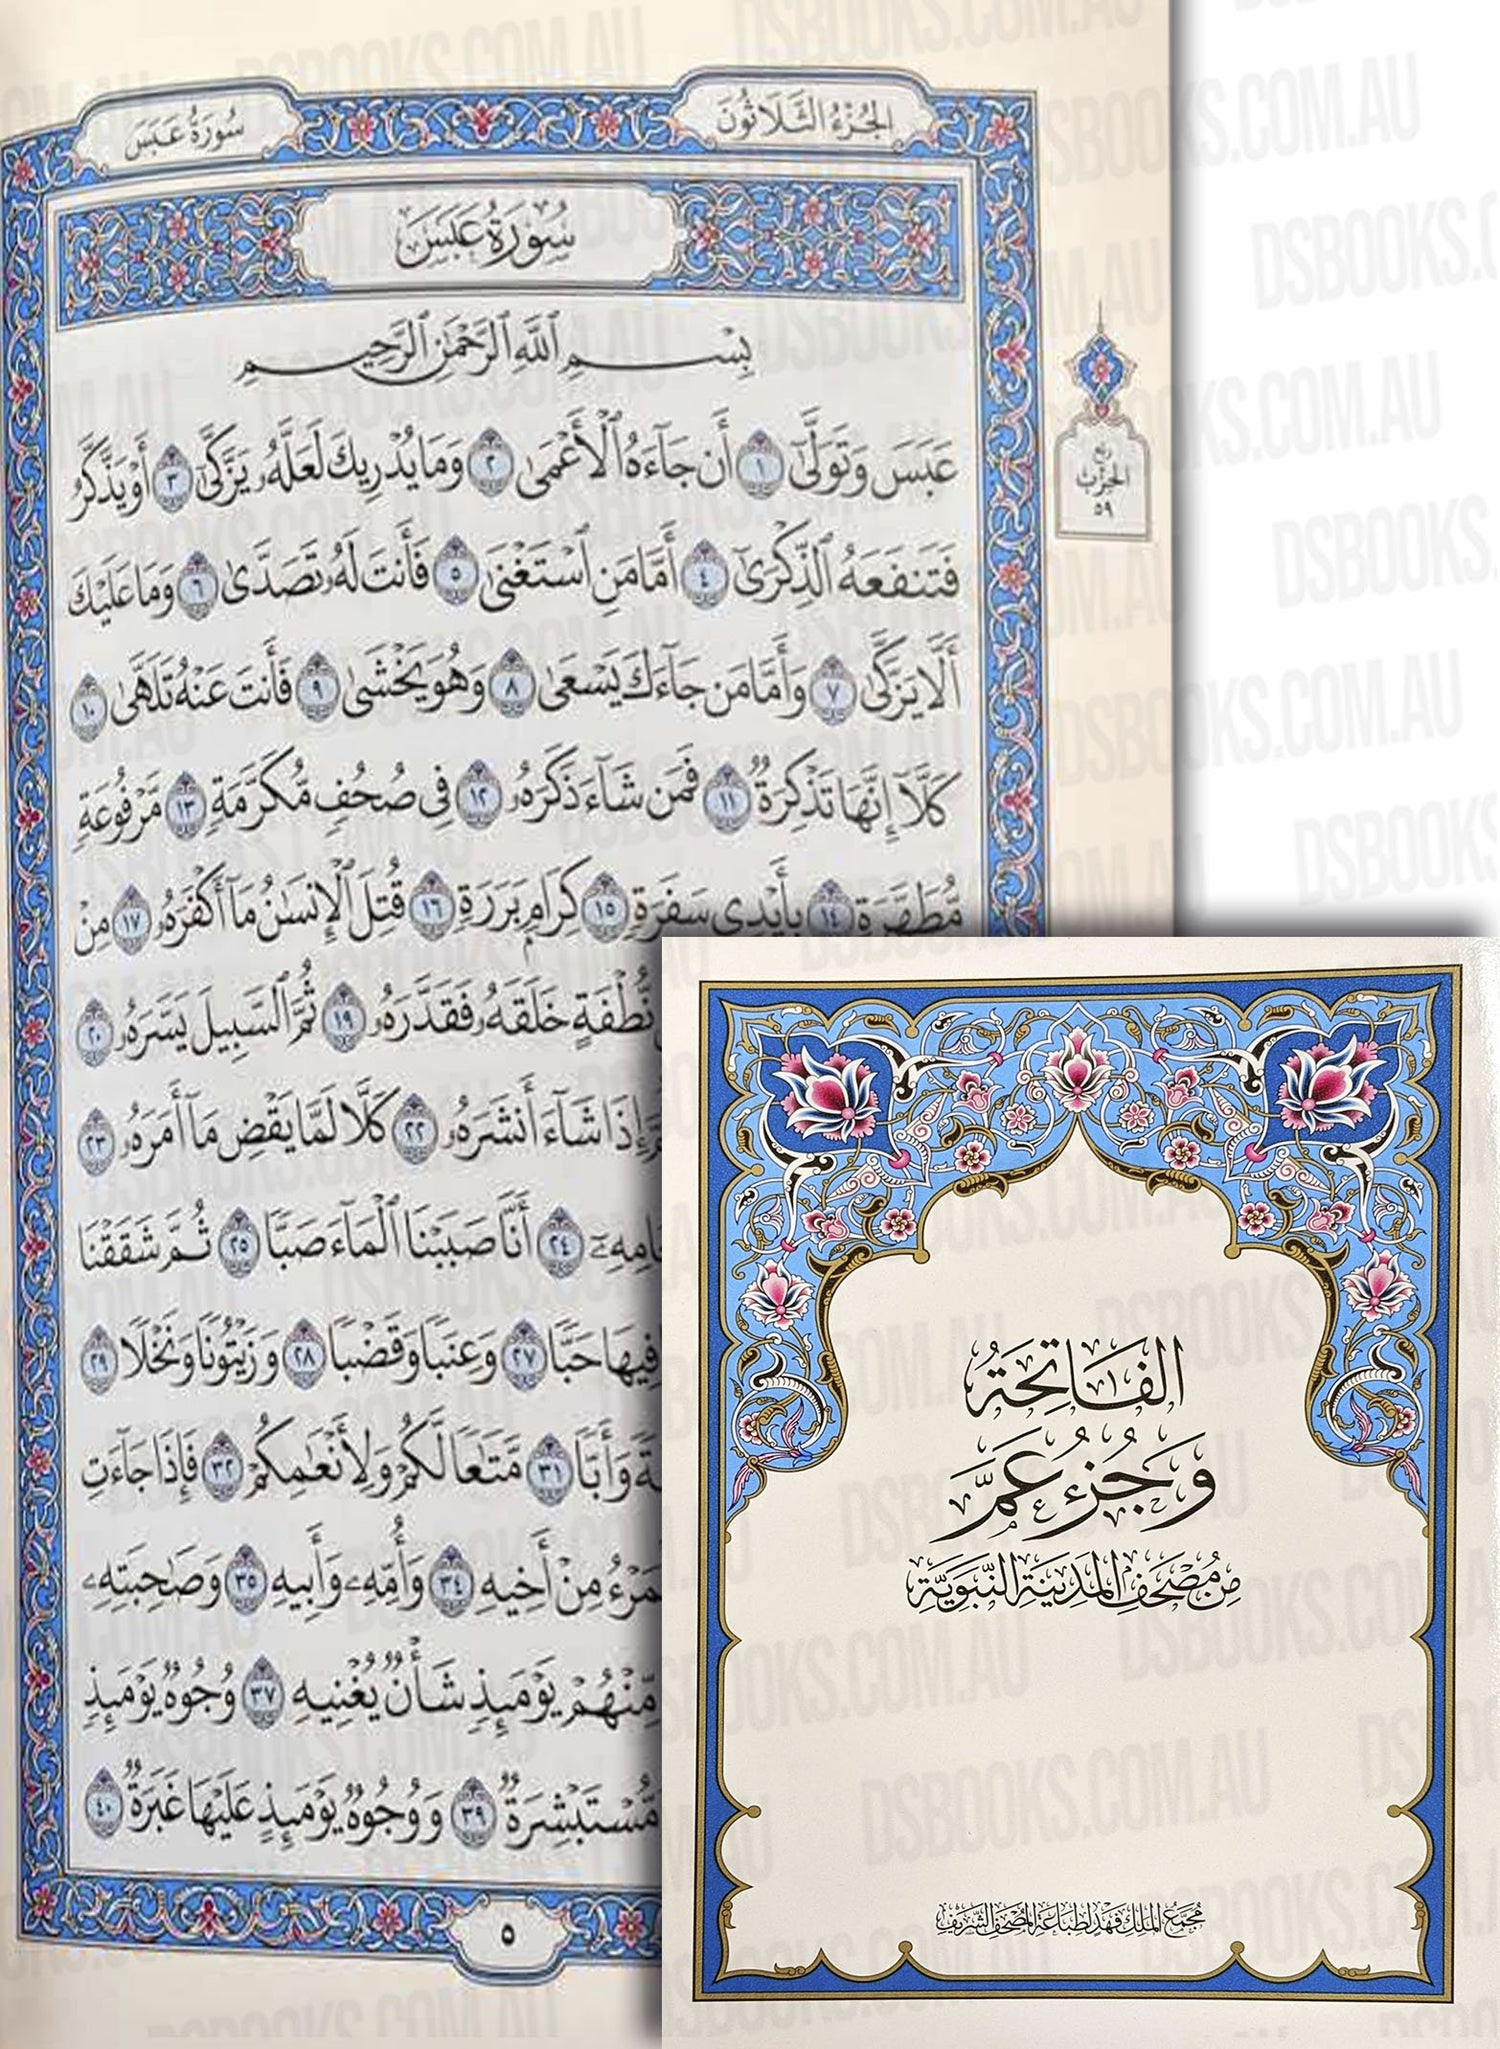 الجُزْءُ الثَّلَاثُونَ
سُورَةُ عَبَسَ
سُورَةُ عَبَسَ
بِسْمِ ٱللَّهِ ٱلرَّحْمَٰنِ ٱلرَّحِيمِ
عَبَسَ وَتَوَلَّىٰٓ ١ أَن جَآءَهُ ٱلْأَعْمَىٰ ٢ وَمَا يُدْرِيكَ لَعَلَّهُۥ يَزَّكَّىٰٓ ٣ أَوْ يَذَّكَّرُ
فَتَنفَعَهُ ٱلذِّكْرَىٰٓ ٤ أَمَّا مَنِ ٱسْتَغْنَىٰ ٥ فَأَنتَ لَهُۥ تَصَدَّىٰ ٦ وَمَا عَلَيْكَ
أَلَّا يَزَّكَّىٰ ٧ وَأَمَّا مَن جَآءَكَ يَسْعَىٰ ٨ وَهُوَ يَخْشَىٰ ٩ فَأَنتَ عَنْهُ تَلَهَّىٰ ١٠
كَلَّآ إِنَّهَا تَذْكِرَةٌ ١١ فَمَن شَآءَ ذَكَرَهُۥ ١٢ فِي صُحُفٍ مُّكَرَّمَةٍ ١٣ مَّرْفُوعَةٍ
مُّطَهَّرَةٍۭ ١٤ بِأَيْدِي سَفَرَةٍ ١٥ كِرَامٍۭ بَرَرَةٍ ١٦ قُتِلَ ٱلْإِنسَٰنُ مَآ أَكْفَرَهُۥ ١٧ مِنْ
نُّطْفَةٍ خَلَقَهُۥ فَقَدَّرَهُۥ ١٩ ثُمَّ ٱلسَّبِيلَ يَسَّرَهُۥ ٢٠
إِذَا شَآءَ أَنشَرَهُۥ ٢٢ كَلَّا لَمَّا يَقْضِ مَآ أَمَرَهُۥ ٢٣
٢٤ أَنَّا صَبَبْنَا ٱلْمَآءَ صَبًّا ٢٥ ثُمَّ شَقَقْنَا
فِيهَا حَبًّا ٢٧ وَعِنَبًا وَقَضْبًا ٢٨ وَزَيْتُونًا وَنَخْلًا ٢٩
وَأَبًّا ٣١ مَّتَٰعًا لَّكُمْ وَلِأَنْعَٰمِكُمْ ٣٢ فَإِذَا جَآءَتِ
مِنْ أَخِيهِ ٣٤ وَأُمِّهِۦ وَأَبِيهِ ٣٥ وَصَٰحِبَتِهِۦ
مِّنْهُمْ يَوْمَئِذٍ شَأْنٌ يُغْنِيهِ ٣٧ وُجُوهٌ يَوْمَئِذٍ
مُّسْتَبْشِرَةٌ ٣٩ وَوُجُوهٌ يَوْمَئِذٍ عَلَيْهَا غَبَرَةٌ ٤٠
٥
ربع
الحِزْب
٥٩
الفَاتِحَةُ
وَجُزْءُ عَمَّ
مِن مُصْحَفِ المَدِينَةِ النَّبَوِيَّةِ
مُجَمَّعُ المَلِكِ فَهْدٍ لِطِبَاعَةِ المُصْحَفِ الشَّرِيفِ
DSBOOKS.COM.AU